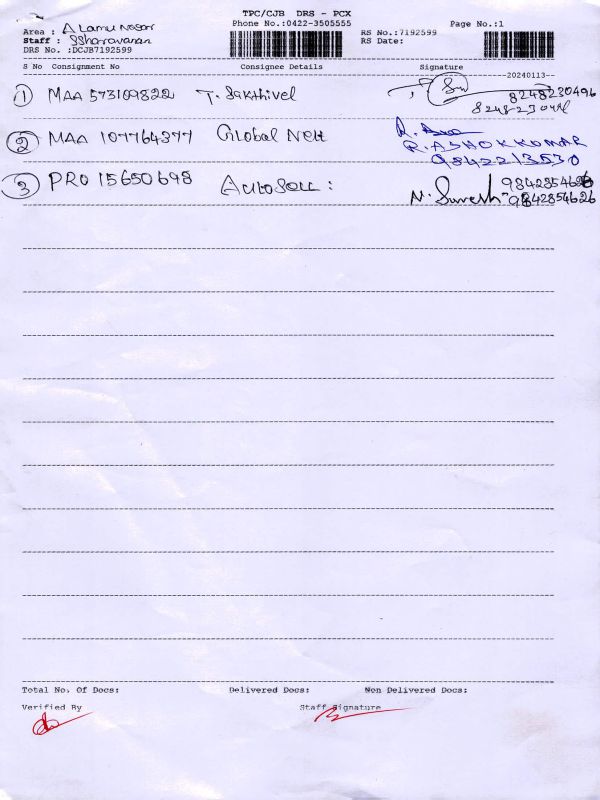 TPC/CJB DRS - PCX
Phone No.:0422-3505555
Page No.:1
Area : Alamu Nagar
RS No.:7192599
Staff : SSharavanan
RS Date:
DRS No. :DCJB7192599
S No Consignment No Consignee Details Signature
--20240113--
1 MAA 573109822 T. Sakthivel 8248230496
2 MAA 107764377 Global Net
R. ASHOKKUMAR
9842213530
3 PRO 15650698 9842854626
N. Suresh 9842854626
Total No. Of Docs: Delivered Docs: Non Delivered Docs:
Verified By Staff Signature